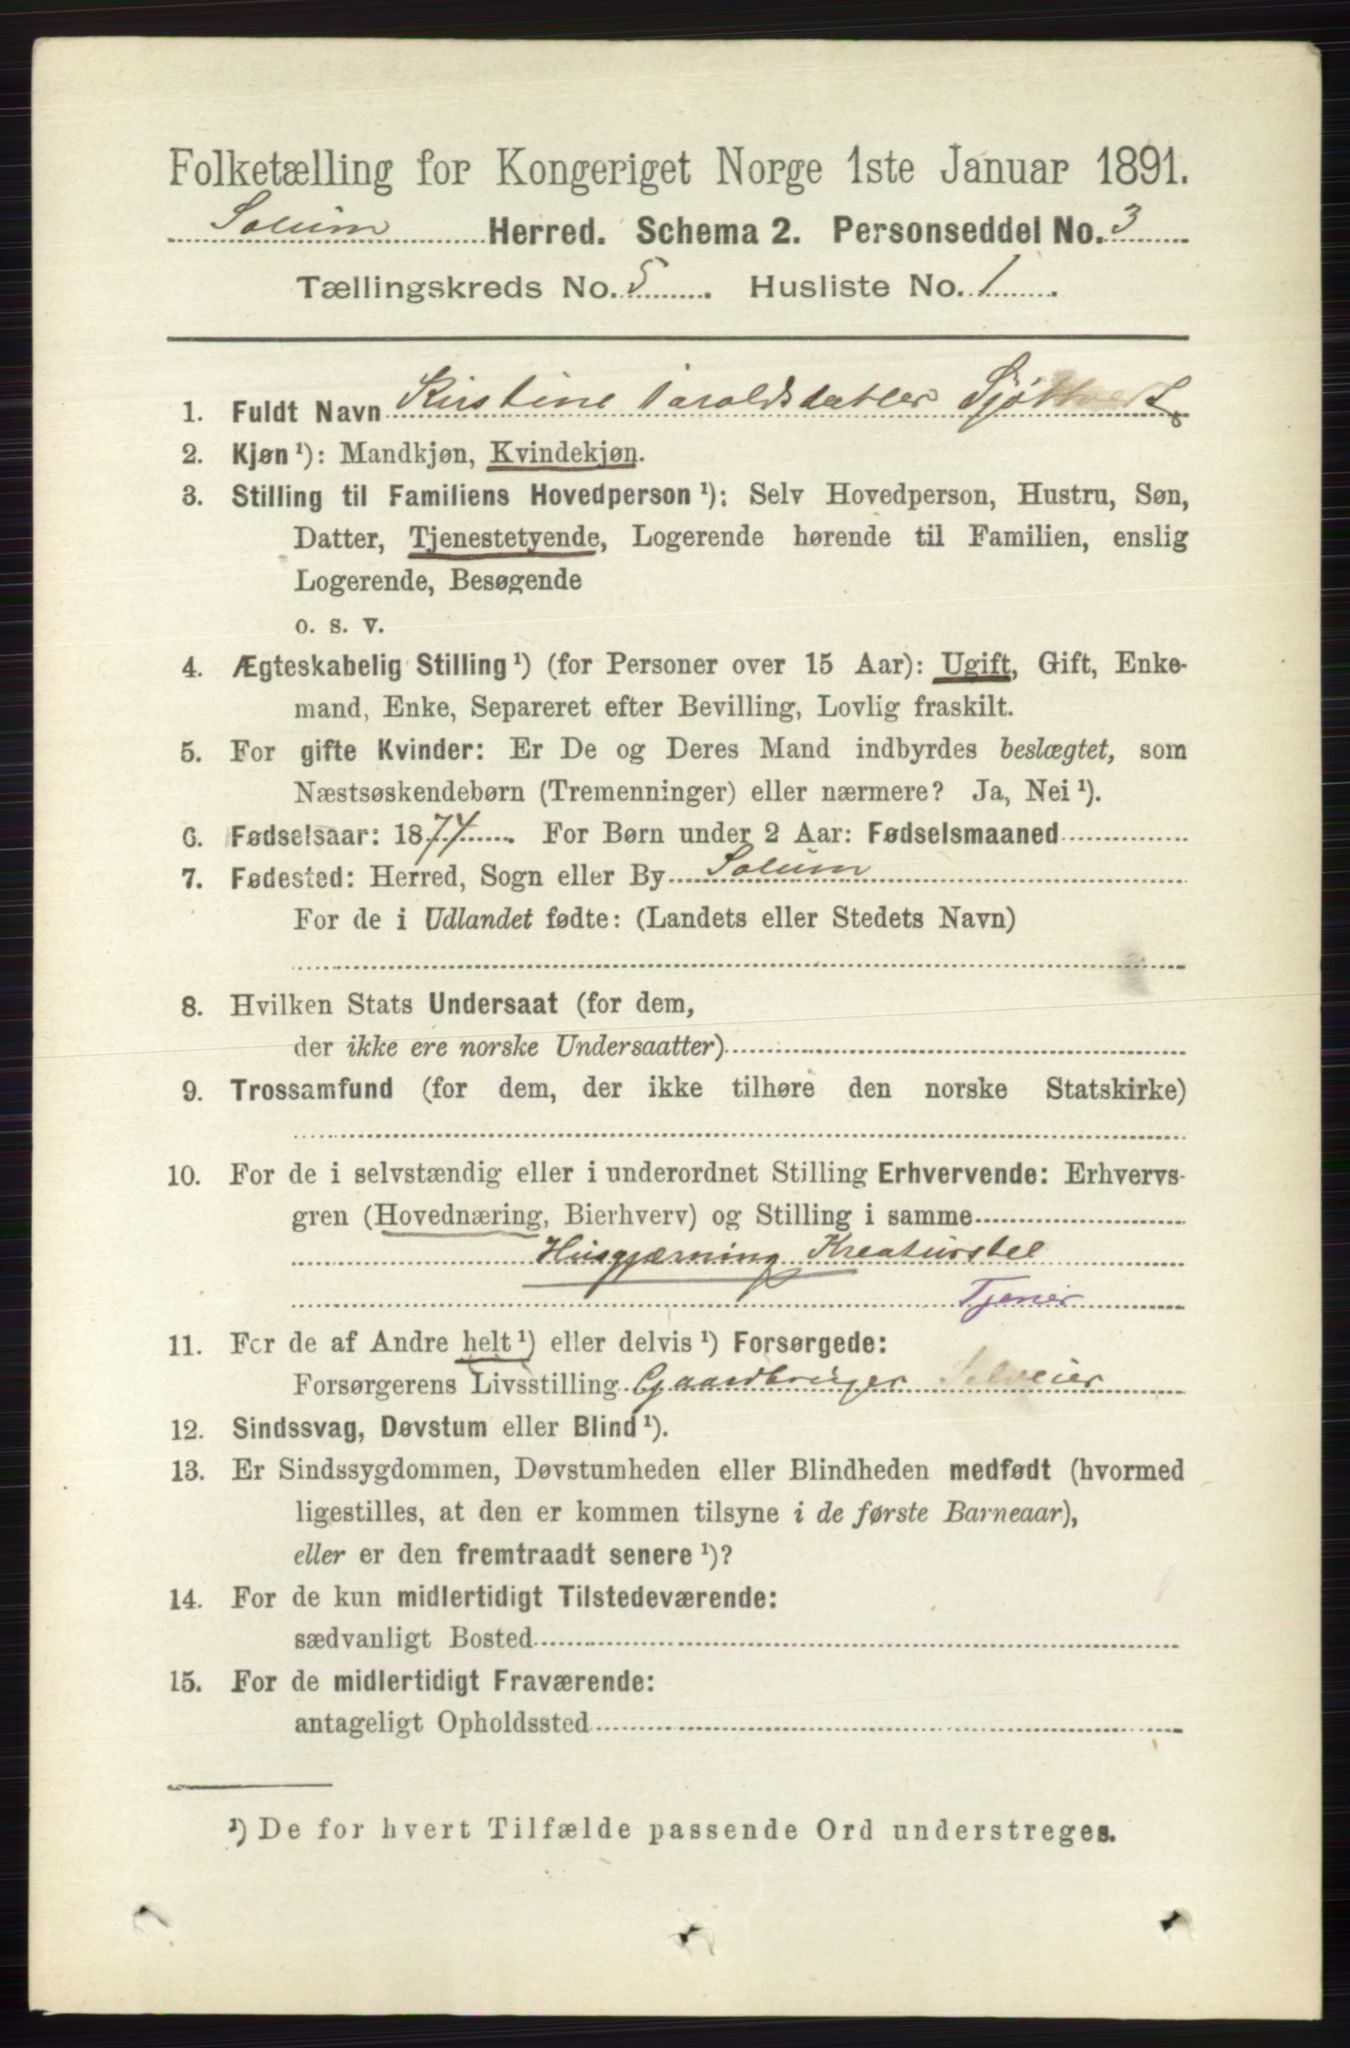 Folketælling for Kongeriget Norge 1ste Januar 1891.
Solum Herred. Schema 2. Personseddel No. 3
Tællingskreds No. 5. Husliste No. 1.
1. Fuldt Navn Kirstine Haroldsdatter
2. Kjøn ¹): Mandkjøn, Kvindekjøn.
3. Stilling til Familiens Hovedperson ¹): Selv Hovedperson, Hustru, Søn,
Datter, Tjenestetyende, Logerende hørende til Familien, enslig
Logerende, Besøgende
o. s. v.
4. Ægteskabelig Stilling ¹) (for Personer over 15 Aar): Ugift, Gift, Enke-
mand, Enke, Separeret efter Bevilling, Lovlig fraskilt.
5. For gifte Kvinder: Er De og Deres Mand indbyrdes beslægtet, som
Næstsøskendebørn (Tremenninger) eller nærmere? Ja, Nei ¹).
6. Fødselsaar: 1874. For Børn under 2 Aar: Fødselsmaaned
7. Fødested: Herred, Sogn eller By Solum
For de i Udlandet fødte: (Landets eller Stedets Navn)
8. Hvilken Stats Undersaat (for dem,
der ikke ere norske Undersaatter)
9. Trossamfund (for dem, der ikke tilhøre den norske Statskirke)
10. For de i selvstændig eller i underordnet Stilling Erhvervende: Erhvervs-
gren (Hovednæring, Bierhverv) og Stilling i samme
Husgjærning Kreaturstel
Tjener
11. For de af Andre helt ¹) eller delvis ¹) Forsørgede:
Forsørgerens Livsstilling Gaardbruger Selveier
12. Sindssvag, Døvstum eller Blind ¹).
13. Er Sindssygdommen, Døvstumheden eller Blindheden medfødt (hvormed
ligestilles, at den er kommen tilsyne i de første Barneaar),
eller er den fremtraadt senere ¹)?
14. For de kun midlertidigt Tilstedeværende:
sædvanligt Bosted
15. For de midlertidigt Fraværende:
antageligt Opholdssted
¹) De for hvert Tilfælde passende Ord understreges.